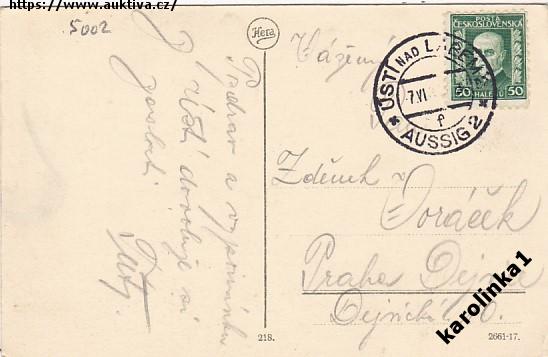 https://www.auktiva.cz/
5002
Hera
Vážený
POSTA
ČESKOSLOVENSKÁ
50 HALÉŘŮ 50
ÚSTÍ NAD LABEM
7.VI
f
* AUSSIG 2 *
Pozdrav a vzpomínku
z Ústí dovoluje si
poslati
Zdeněk
Voráček
Praha Dejvice
Dejvická 10.
218.
2661-17.
karolinka1